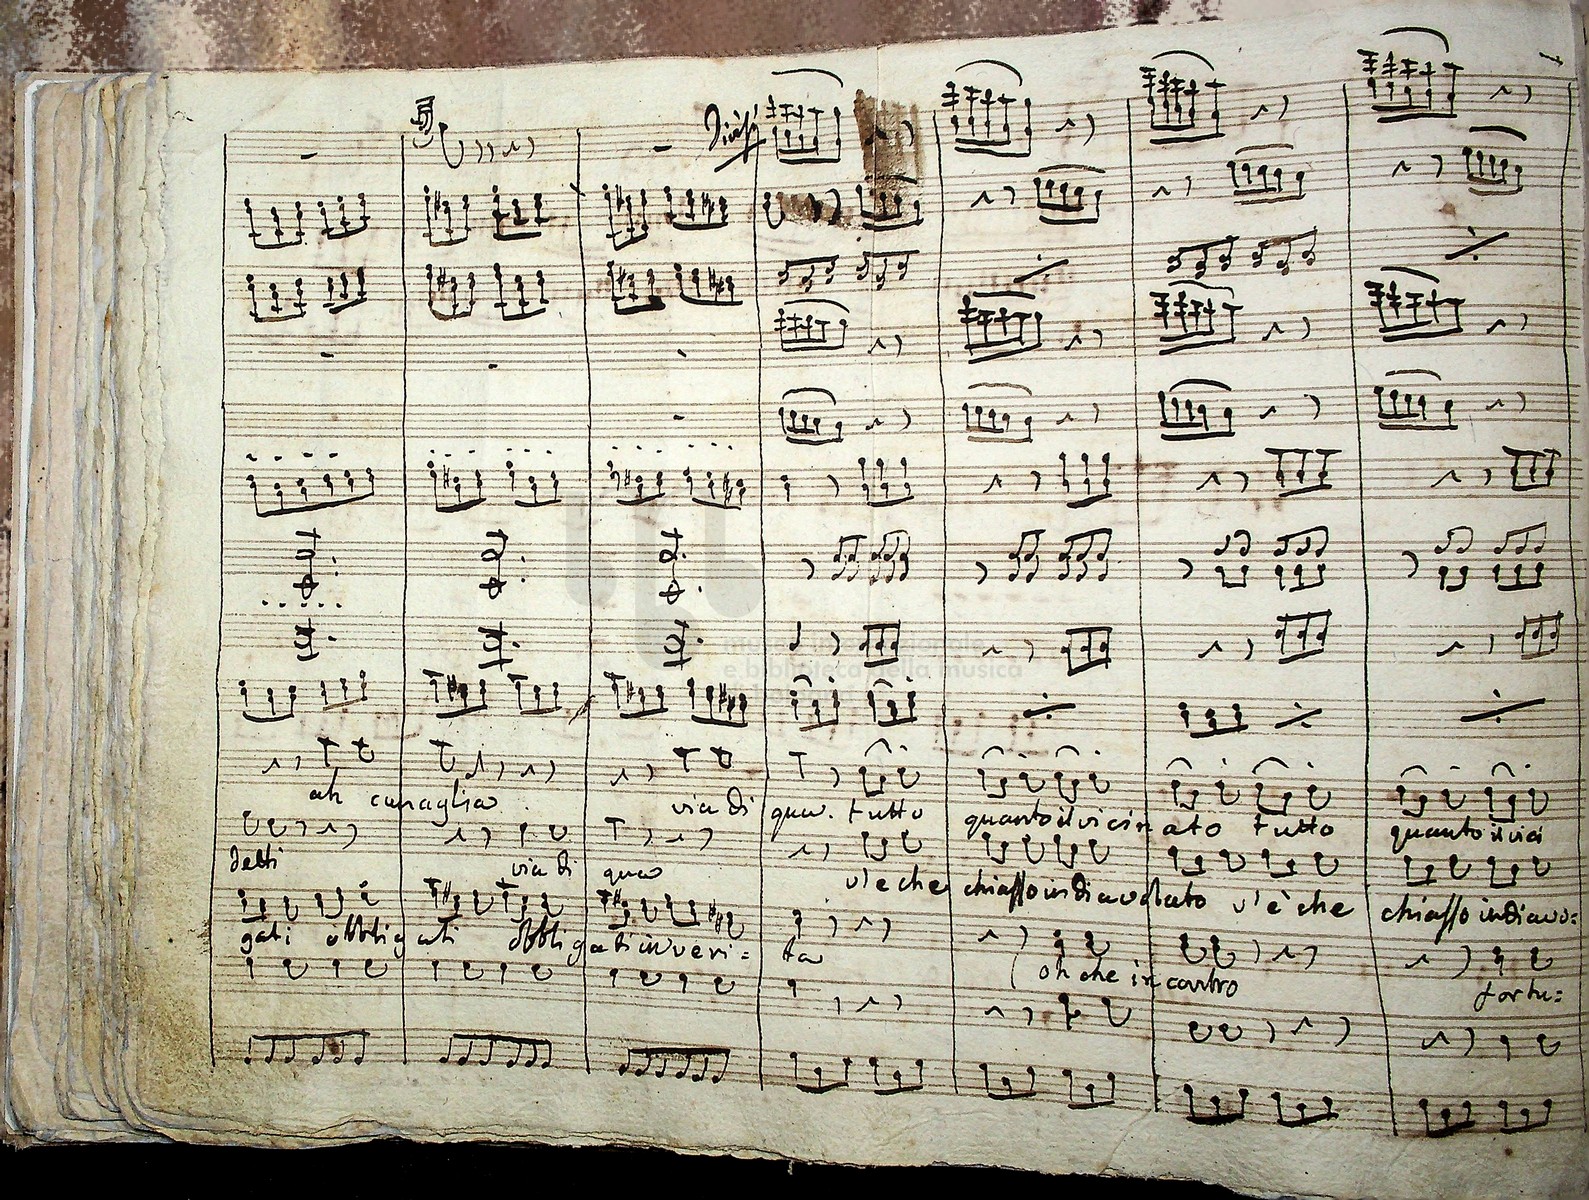 museo internazionale
e biblioteca della musica
ah canaglia via di qua. tutto quanto il vicinato tutto quanto il vici
detti via di qua v'è che chiasso indiavolato v'è che chiasso indiavo=
gati obbligati obbligati in veri= ta oh che incontro fortu=